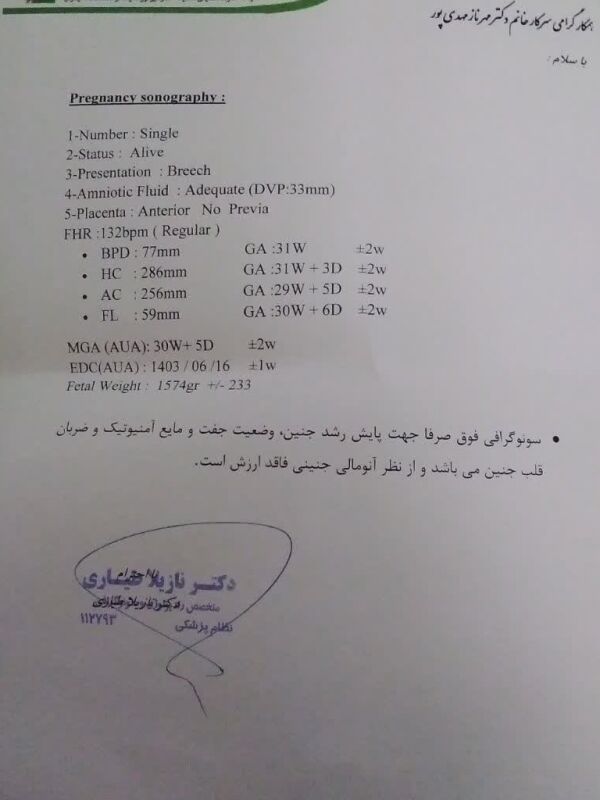 همکار گرامی سرکار خانم دکتر مهرناز مهدی پور
با سلام :
Pregnancy sonography :
1-Number : Single
2-Status : Alive
3-Presentation : Breech
4-Amniotic Fluid : Adequate (DVP:33mm)
5-Placenta : Anterior No Previa
FHR :132bpm ( Regular )
• BPD : 77mm GA :31W ±2w
• HC : 286mm GA :31W + 3D ±2w
• AC : 256mm GA :29W + 5D ±2w
• FL : 59mm GA :30W + 6D ±2w
MGA (AUA): 30W+ 5D ±2w
EDC(AUA) : 1403 / 06 /16 ±1w
Fetal Weight : 1574gr +/- 233
• سونوگرافی فوق صرفا جهت پایش رشد جنین، وضعیت جفت و مایع آمنیوتیک و ضربان
قلب جنین می باشد و از نظر آنومالی جنینی فاقد ارزش است.
با احترام
دکتر نازیلا طیاری
دکتر نازیلا طیاری
متخصص
نظام پزشکی
۱۱۲۷۹۳